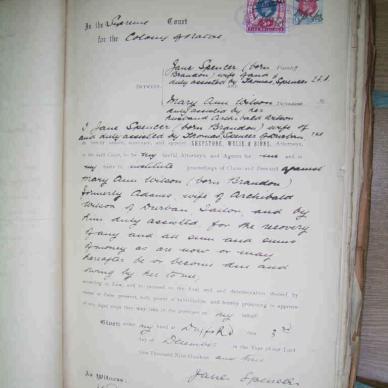 In the Supreme Court
for the Colony of Natal
Jane Spencer (born
Brandon) wife of and
duly assisted by Thomas Spencer
BETWEEN
and
Mary Ann Wilson
duly assisted by her
husband Archibald Wilson
I Jane Spencer (born Brandon) wife of
and duly assisted by Thomas Spencer
do hereby nominate, constitute, and appoint SHEPSTONE, WYLIE & BINNS, Attorneys,
of the said Court, to be my lawful Attorneys and Agents for me and in
my name to institute proceedings of Claim and Demand against
Mary Ann Wilson (born Brandon)
formerly Adams, wife of Archibald
Wilson of Durban Sailor, and by
him duly assisted, for the recovery
of any and all sum and sums
of money as are now or may
hereafter be or become due and
owing by her to me,
according to Law, and to proceed to the final end and determination thereof by
virtue of these present, with power of substitution, and hereby promising to approve
of any legal steps they may take in the premises on my behalf.
Given under my hand at this 3rd
day of December in the Year of our Lord
One Thousand Nine Hundred and
Jane Spencer
As Witness: